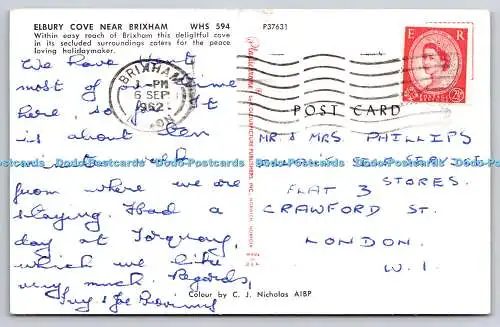 ELBURY COVE NEAR BRIXHAM WHS 594 P37631
Within easy reach of Brixham this deligtful cove
in its secluded surroundings caters for the peace
loving holidaymaker.
BRIXHAM
-PM
6 SEP
1962
E R
POSTAGE REVENUE
2½D
POST CARD
We have spent
most of our time
here, so far. It
is about ten
minutes walk
from where we are
staying. Had a
day at Torquay,
which we like
very much. Regards,
Ivy & Joe
MR & MRS. PHILLIPS
STORES.
FLAT 3
CRAWFORD ST.
LONDON.
W.1.
MADE IN
U.S.A.
Colour by C. J. Nicholas AIBP
Dodo-Postcards Dodo-Postcards Dodo-Postcards Dodo-Postcards Dodo-Postcards